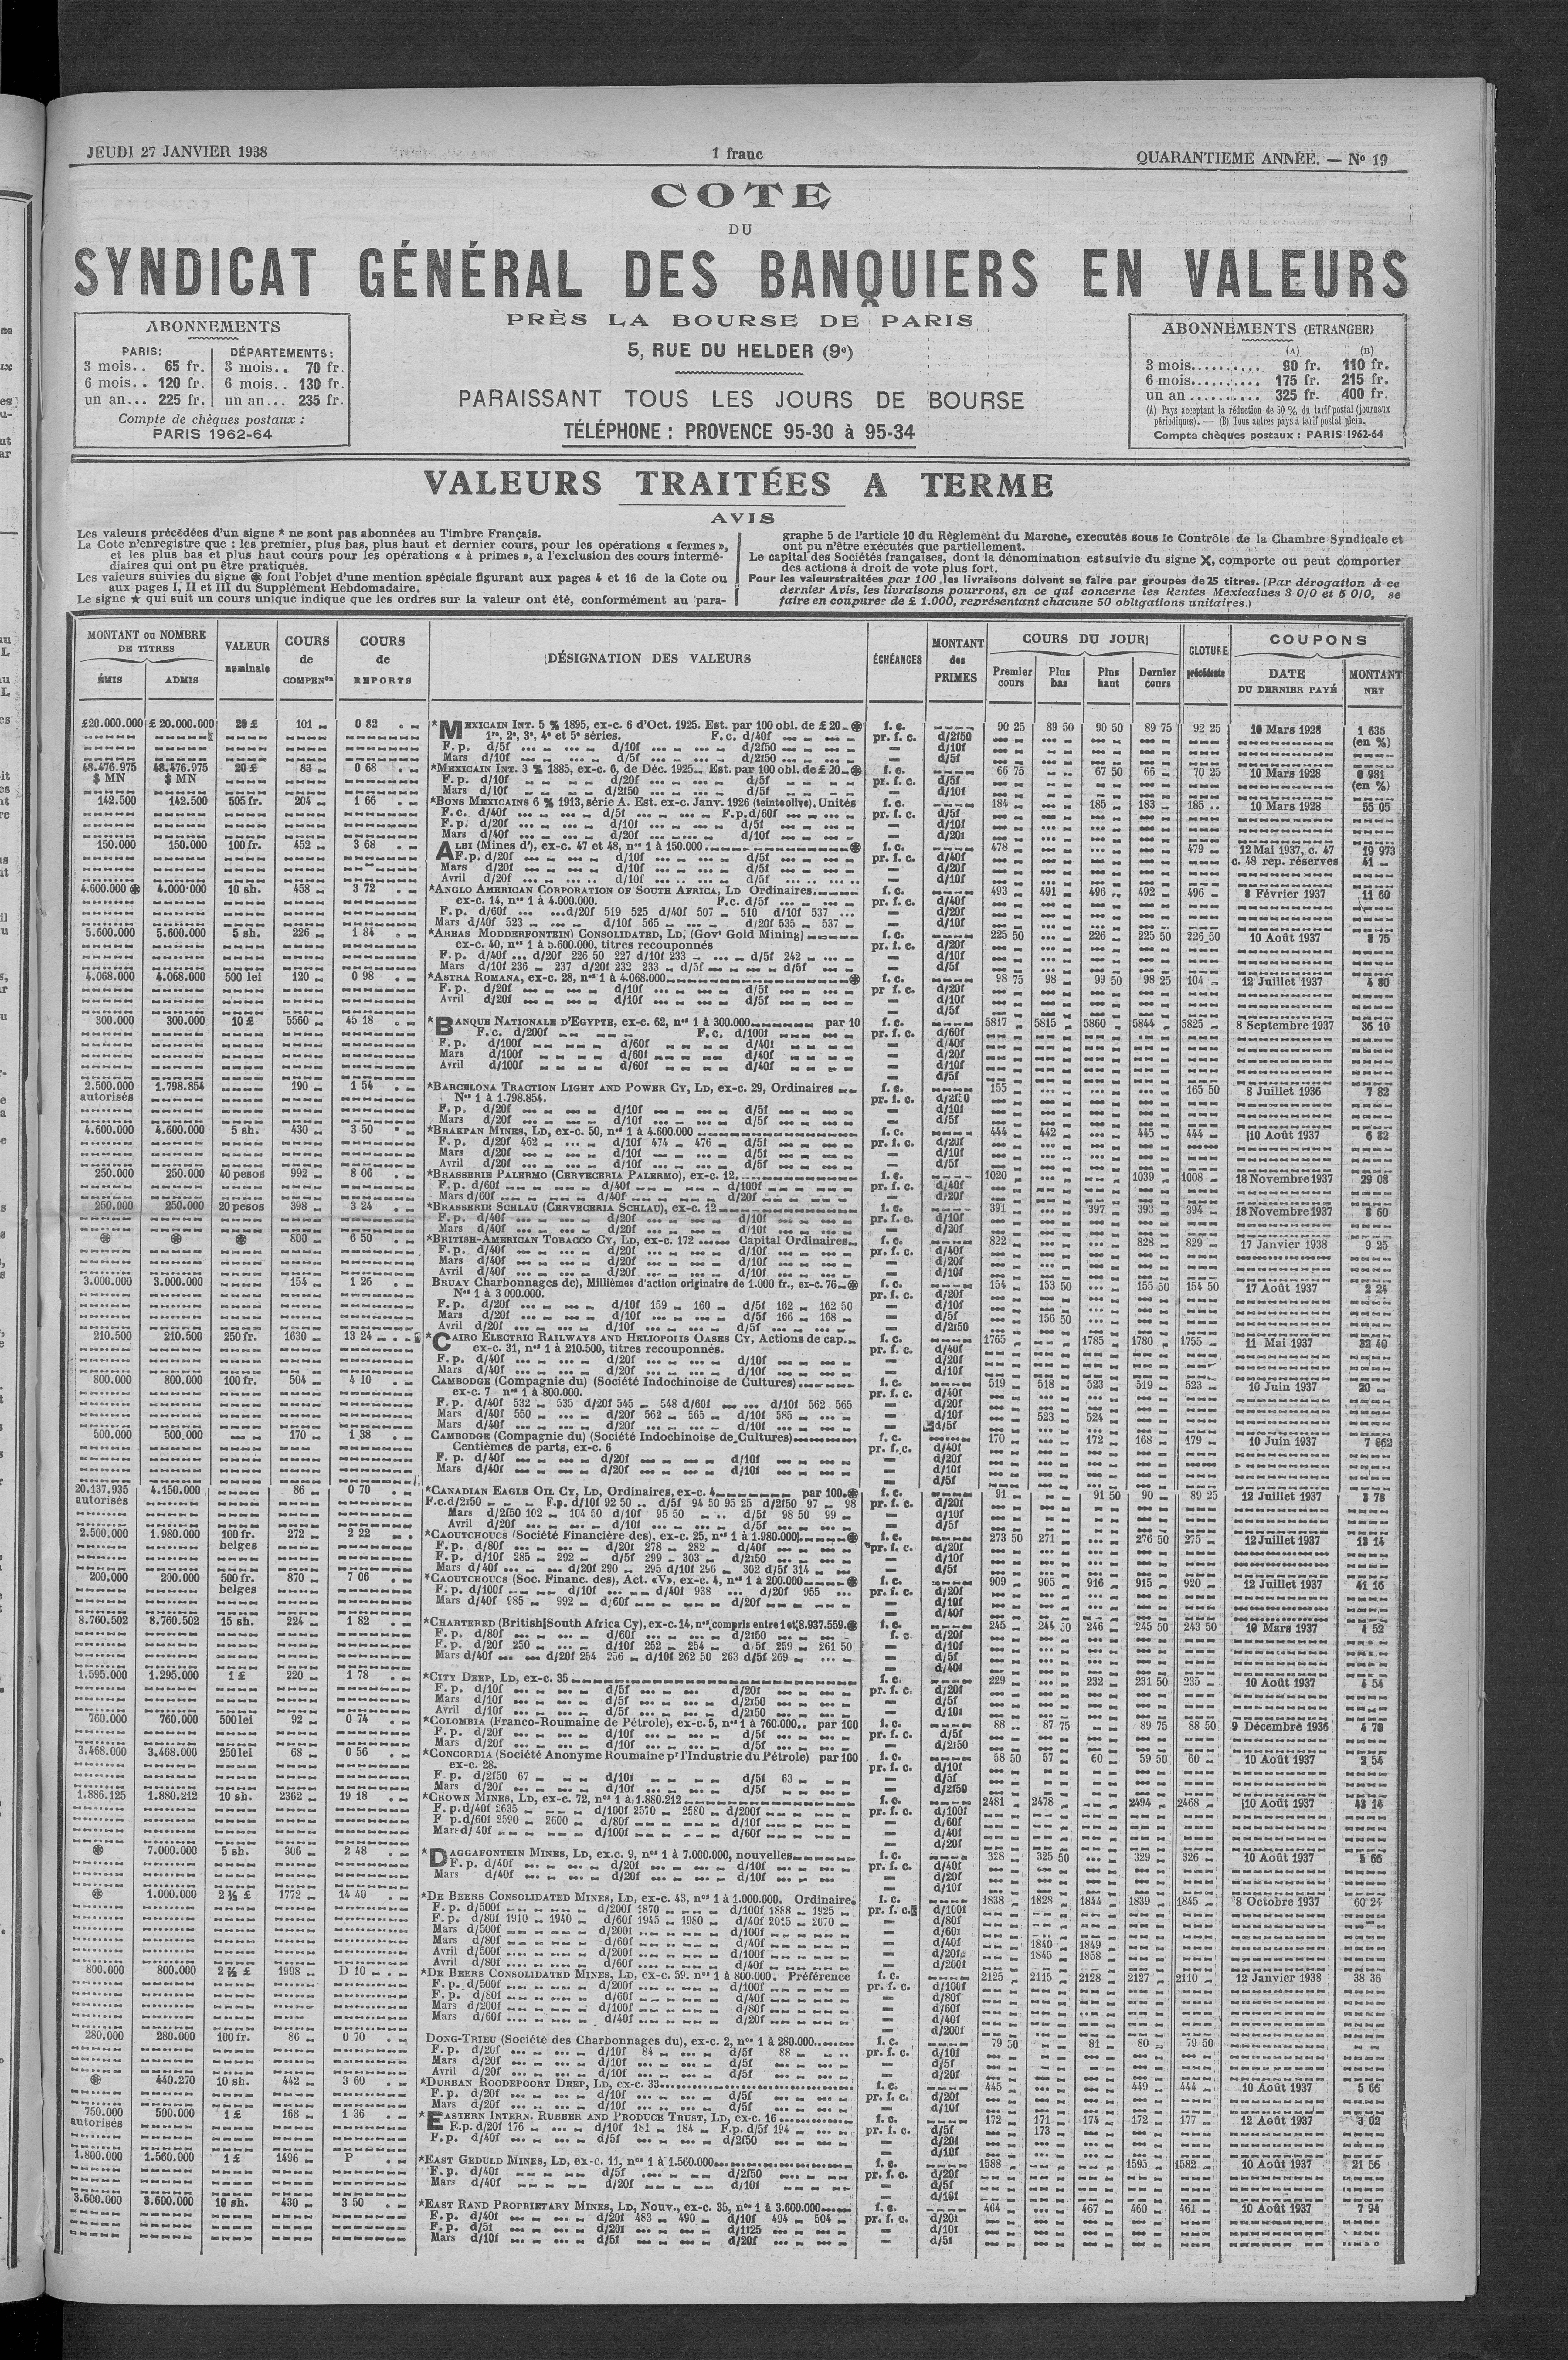 JEUDI 27 JANVIER 1938
1 franc
QUARANTIEME ANNÉE. — No 19
COTE
DU
SYNDICAT GÉNÉRAL DES BANQUIERS EN VALEURS
PRÈS LA BOURSE DE PARIS
5, RUE DU HELDER (9e)
PARAISSANT TOUS LES JOURS DE BOURSE
TÉLÉPHONE : PROVENCE 95-30 à 95-34
ABONNEMENTS
PARIS: DÉPARTEMENTS:
3 mois.. 65 fr. 3 mois.. 70 fr.
6 mois.. 120 fr. 6 mois.. 130 fr.
un an... 225 fr. un an... 235 fr.
Compte de chèques postaux :
PARIS 1962-64
ABONNEMENTS (ETRANGER)
(A) (B)
3 mois.......... 90 fr. 110 fr.
6 mois.......... 175 fr. 215 fr.
un an.......... 325 fr. 400 fr.
(A) Pays acceptant la réduction de 50 % du tarif postal (journaux
périodiques). — (B) Tous autres pays à tarif postal plein.
Compte chèques postaux : PARIS 1962-64
VALEURS TRAITÉES A TERME
AVIS
Les valeurs précédées d'un signe * ne sont pas abonnées au Timbre Français.
La Cote n'enregistre que : les premier, plus bas, plus haut et dernier cours, pour les opérations « fermes »,
et les plus bas et plus haut cours pour les opérations « à primes », a l'exclusion des cours intermé-
diaires qui ont pu être pratiqués.
Les valeurs suivies du signe ⊛ font l'objet d'une mention spéciale figurant aux pages 4 et 16 de la Cote ou
aux pages I, II et III du Supplément Hebdomadaire.
Le signe ★ qui suit un cours unique indique que les ordres sur la valeur ont été, conformément au para-
graphe 5 de l'article 10 du Règlement du Marché, executés sous le Contrôle de la Chambre Syndicale et
ont pu n'être exécutés que partiellement.
Le capital des Sociétés françaises, dont la dénomination est suivie du signe X, comporte ou peut comporter
des actions à droit de vote plus fort.
Pour les valeurs traitées par 100, les livraisons doivent se faire par groupes de 25 titres. (Par dérogation à ce
dernier Avis, les livraisons pourront, en ce qui concerne les Rentes Mexicaines 3 0/0 et 5 0/0, se
faire en coupures de £ 1.000, représentant chacune 50 obligations unitaires.)
MONTANT ou NOMBRE DE TITRES
ÉMIS ADMIS
VALEUR nominale
COURS de COMPENon
COURS de REPORTS
DÉSIGNATION DES VALEURS
ÉCHÉANCES
MONTANT des PRIMES
COURS DU JOUR
Premier cours Plus bas Plus haut Dernier cours
CLOTURE précédente
COUPONS
DATE DU DERNIER PAYÉ
MONTANT NET
£20.000.000 £ 20.000.000 20 £ 101 0 82 *MEXICAIN INT. 5 % 1895, ex-c. 6 d'Oct. 1925. Est. par 100 obl. de £ 20 ⊛ f. c. 90 25 89 50 90 50 89 75 92 25 10 Mars 1928 1 636
1re, 2e, 3e, 4e et 5e séries. F. c. d/40f pr. f. c. d/2f50 (en %)
48.476.975 48.476.975 20 £ 83 0 68 *MEXICAIN INT. 3 % 1885, ex-c. 6, de Déc. 1925 Est. par 100 obl. de £ 20 ⊛ f. c. 66 75 67 50 66 70 25 10 Mars 1928 0 981
$ MN $ MN (en %)
142.500 142.500 505 fr. 204 1 66 *BONS MEXICAINS 6 % 1913, série A. Est. ex-c. Janv. 1926 (teinte olive). Unités f. c. 184 185 183 185 10 Mars 1928 55 05
150.000 150.000 100 fr. 452 3 68 ALBI (Mines d'), ex-c. 47 et 48, nos 1 à 150.000 ⊛ f. c. 478 479 12 Mai 1937, c. 47 19 973
c. 48 rep. réserves 41
4.600.000 ⊛ 4.000.000 10 sh. 458 3 72 *ANGLO AMERICAN CORPORATION OF SOUTH AFRICA, LD Ordinaires f. c. 493 491 496 492 496 8 Février 1937 11 60
ex-c. 14, nos 1 à 4.000.000. F.c. d/5f pr. f. c. d/40f
F. p. d/60f d/20f 519 525 d/40f 507 510 d/10f 537
Mars d/40f 523 d/10f 565 d/20f 535 537
5.600.000 5.600.000 5 sh. 226 1 84 *AREAS MODDERFONTEIN CONSOLIDATED, LD, (Govt Gold Mining) f. c. 225 50 226 225 50 226 50 10 Août 1937 8 75
ex-c. 40, nos 1 à 5.600.000, titres recouponnés
F. p. d/40f d/20f 226 50 227 d/10f 233 d/5f 242
Mars d/10f 236 237 d/20f 232 233 d/5f
4.068.000 4.068.000 500 lei 120 0 98 *ASTRA ROMANA, ex-c. 28, nos 1 à 4.068.000 ⊛ f. c. 98 75 98 99 50 98 25 104 12 Juillet 1937 4 80
300.000 300.000 10 £ 5560 45 18 *BANQUE NATIONALE D'EGYPTE, ex-c. 62, nos 1 à 300.000 par 10 f. c. 5817 5815 5860 5844 5825 8 Septembre 1937 36 10
2.500.000 1.798.854 190 1 54 *BARCELONA TRACTION LIGHT AND POWER CY, LD, ex-c. 29, Ordinaires f. c. 155 165 50 8 Juillet 1936 7 82
autorisés Nos 1 à 1.798.854.
4.600.000 4.600.000 5 sh. 430 3 50 *BRAKPAN MINES, LD, ex-c. 50, nos 1 à 4.600.000 f. c. 444 442 445 444 10 Août 1937 6 82
F. p. d/20f 462 d/10f 474 476 d/5f
250.000 250.000 40 pesos 992 8 06 *BRASSERIE PALERMO (CERVECERIA PALERMO), ex-c. 12. f. c. 1020 1039 1008 18 Novembre 1937 29 08
250.000 250.000 20 pesos 398 3 24 *BRASSERIE SCHLAU (CERVECERIA SCHLAU), ex-c. 12 f. c. 391 397 393 394 18 Novembre 1937 8 60
⊛ ⊛ ⊛ 800 6 50 *BRITISH-AMERICAN TOBACCO CY, LD, ex-c. 172 Capital Ordinaires f. c. 822 828 829 17 Janvier 1938 9 25
3.000.000 3.000.000 154 1 26 BRUAY Charbonnages de), Millièmes d'action originaire de 1.000 fr., ex-c. 76 ⊛ f. c. 154 153 50 155 50 154 50 17 Août 1937 2 24
Nos 1 à 3 000.000.
F. p. d/20f d/10f 159 160 d/5f 162 162 50
Mars d/20f d/10f d/5f 166 168 d/5f 156 50
210.500 210.500 250 fr. 1630 13 24 *CAIRO ELECTRIC RAILWAYS AND HELIOPOLIS OASES CY, Actions de cap. f. c. 1765 1785 1780 1755 11 Mai 1937 32 40
ex-c. 31, nos 1 à 210.500, titres recouponnés.
800.000 800.000 100 fr. 504 4 10 CAMBODGE (Compagnie du) (Société Indochinoise de Cultures) f. c. 519 518 523 519 523 10 Juin 1937 20
ex-c. 7 nos 1 à 800.000.
F. p. d/40f 532 535 d/20f 545 548 d/60f d/10f 562 565
Mars d/40f 550 d/20f 562 565 d/10f 585 d/10f 523 524
500.000 500.000 170 1 38 CAMBODGE (Compagnie du) (Société Indochinoise de Cultures) f. c. 170 172 168 179 10 Juin 1937 7 862
Centièmes de parts, ex-c. 6
20.137.935 4.150.000 86 0 70 *CANADIAN EAGLE OIL CY, LD, Ordinaires, ex-c. 4 par 100 ⊛ f. c. 91 91 50 90 89 25 12 Juillet 1937 3 78
autorisés F.c. d/2f50 F.p. d/10f 92 50 d/5f 94 50 95 25 d/2f50 97 98
Mars d/2f50 102 104 50 d/10f 95 50 d/5f 98 50 99
2.500.000 1.980.000 100 fr. belges 272 2 22 *CAOUTCHOUCS (Société Financière des), ex-c. 25, nos 1 à 1.980.000 ⊛ f. c. 273 50 271 276 50 275 12 Juillet 1937 13 14
F. p. d/80f d/20f 278 282 d/40f
F. p. d/10f 285 292 d/5f 299 303 d/2f50
Mars d/40f d/20f 290 295 d/10f 296 302 d/5f 314
200.000 200.000 500 fr. belges 870 7 06 *CAOUTCHOUCS (Soc. Financ. des), Act. «V», ex-c. 4, nos 1 à 200.000 ⊛ f. c. 909 905 916 915 920 12 Juillet 1937 41 16
F. p. d/100f d/10f d/40f 938 d/20f 955
Mars d/40f 985 992 d/60f d/20f
8.760.502 8.760.502 15 sh. 224 1 82 *CHARTERED (British South Africa Cy), ex-c. 14, nos compris entre 1 et 8.937.559 ⊛ f. c. 245 244 50 246 245 50 243 50 10 Mars 1937 4 52
F. p. d/20f 250 d/10f 252 254 d/5f 259 261 50
Mars d/40f d/20f 254 256 d/10f 262 50 263 d/5f 269
1.595.000 1.295.000 1 £ 220 1 78 *CITY DEEP, LD, ex-c. 35 f. c. 229 232 231 50 235 10 Août 1937 4 54
760.000 760.000 500 lei 92 0 74 *COLOMBIA (Franco-Roumaine de Pétrole), ex-c. 5, nos 1 à 760.000.. par 100 f. c. 88 87 75 89 75 88 50 9 Décembre 1936 4 70
3.468.000 3.468.000 250 lei 68 0 56 *CONCORDIA (Société Anonyme Roumaine pr l'Industrie du Pétrole) par 100 f. c. 58 50 57 60 59 50 60 10 Août 1937 2 54
ex-c. 28.
F. p. d/2f50 67 d/10f d/5f 63
1.886.125 1.880.212 10 sh. 2362 19 18 *CROWN MINES, LD, ex-c. 72, nos 1 à 1.880.212 f. c. 2481 2478 2494 2468 10 Août 1937 43 14
F. p. d/40f 2635 d/100f 2570 2580 d/200f
F. p. d/60f 2590 2600 d/80f d/10f
⊛ 7.000.000 5 sh. 306 2 48 *DAGGAFONTEIN MINES, LD, ex.c. 9, nos 1 à 7.000.000, nouvelles f. c. 328 325 50 329 326 10 Août 1937 5 66
⊛ 1.000.000 2 ½ £ 1772 14 40 *DE BEERS CONSOLIDATED MINES, LD, ex-c. 43, nos 1 à 1.000.000. Ordinaire. f. c. 1838 1828 1844 1839 1845 8 Octobre 1937 60 24
F. p. d/500f d/200f 1870 d/100f 1888 1925
F. p. d/80f 1910 1940 d/60f 1945 1980 d/40f 2015 2070
d/40f 1840 1849
d/20f 1845 1858
800.000 800.000 2 ½ £ 1998 D 10 *DE BEERS CONSOLIDATED MINES, LD, ex-c. 59. nos 1 à 800.000. Préférence f. c. 2125 2115 2128 2127 2110 12 Janvier 1938 38 36
280.000 280.000 100 fr. 86 0 70 DONG-TRIEU (Société des Charbonnages du), ex-c. 2, nos 1 à 280.000 f. c. 79 50 81 80 79 50
F. p. d/20f d/10f 84 d/5f 88
⊛ 440.270 10 sh. 442 3 60 *DURBAN ROODEPOORT DEEP, LD, ex-c. 33 f. c. 445 449 444 10 Août 1937 5 66
750.000 500.000 1 £ 168 1 36 *EASTERN INTERN. RUBBER AND PRODUCE TRUST, LD, ex-c. 16 f. c. 172 171 174 172 177 12 Août 1937 3 02
autorisés F.p. d/20f 176 d/10f 181 184 F.p. d/5f 194 pr. f. c. d/5f 173
1.800.000 1.560.000 1 £ 1496 P *EAST GEDULD MINES, LD, ex-c. 11, nos 1 à 1.560.000 f. c. 1588 1595 1582 10 Août 1937 21 56
3.600.000 3.600.000 10 sh. 430 3 50 *EAST RAND PROPRIETARY MINES, LD, Nouv., ex-c. 35, nos 1 à 3.600.000 f. c. 464 467 460 461 10 Août 1937 7 94
F. p. d/40f d/20f 483 490 d/10f 494 504 pr. f. c. d/20f
F. p. d/5f d/20f d/1f25 d/10f
Mars d/10f d/5f d/20f d/5f